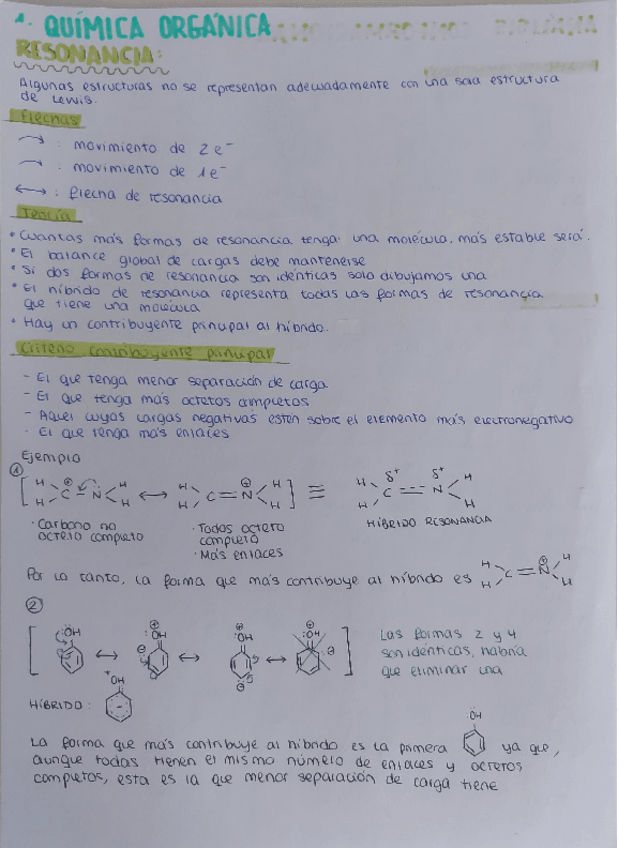 1. QUÍMICA ORGÁNICA
RESONANCIA:
Algunas estructuras no se representan adecuadamente con una sola estructura
de Lewis.
Flechas
: movimiento de 2e⁻
: movimiento de 1e⁻
↔ : flecha de resonancia
Teoría
• Cuantas más formas de resonancia tenga una molécula, más estable será.
• El balance global de cargas debe mantenerse
• Si dos formas de resonancia son idénticas solo dibujamos una
• El híbrido de resonancia representa todas las formas de resonancia
que tiene una molécula
• Hay un contribuyente principal al híbrido.
Criterio contribuyente principal
- El que tenga menor separación de carga
- El que tenga más octetos completos
- Aquel cuyas cargas negativas estén sobre el elemento más electronegativo
- El que tenga más enlaces
Ejemplo
①
[ H H C ⊕ — N H H ↔ H H C = N ⊕ H H ] ≡ H H C δ⁺ N δ⁺ H H
· Carbono no
octeto completo
· Todos octeto
completo
· Más enlaces
HÍBRIDO RESONANCIA
Por lo tanto, la forma que más contribuye al híbrido es H H C = N ⊕ H H
②
[ :ÖH ↔ ⊕ :OH ⊖ ↔ ⊕ :OH ⊖ ↔ ⊕ :OH ⊖ ]
Las formas 2 y 4
son idénticas, habría
que eliminar una
HÍBRIDO: ⁺OH
La forma que más contribuye al híbrido es la primera :OH ya que,
aunque todas tienen el mismo número de enlaces y octetos
completos, esta es la que menor separación de carga tiene